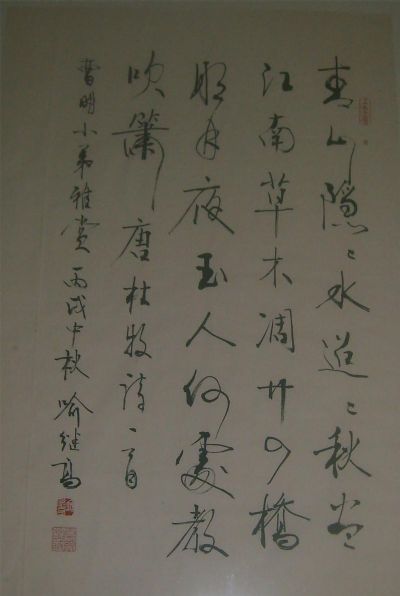 青山隐〻水迢〻秋尽
江南草木凋廿四橋
明月夜玉人何處教
吹簫 唐杜牧詩一首
小弟雅赏 丙戌中秋 喻继高